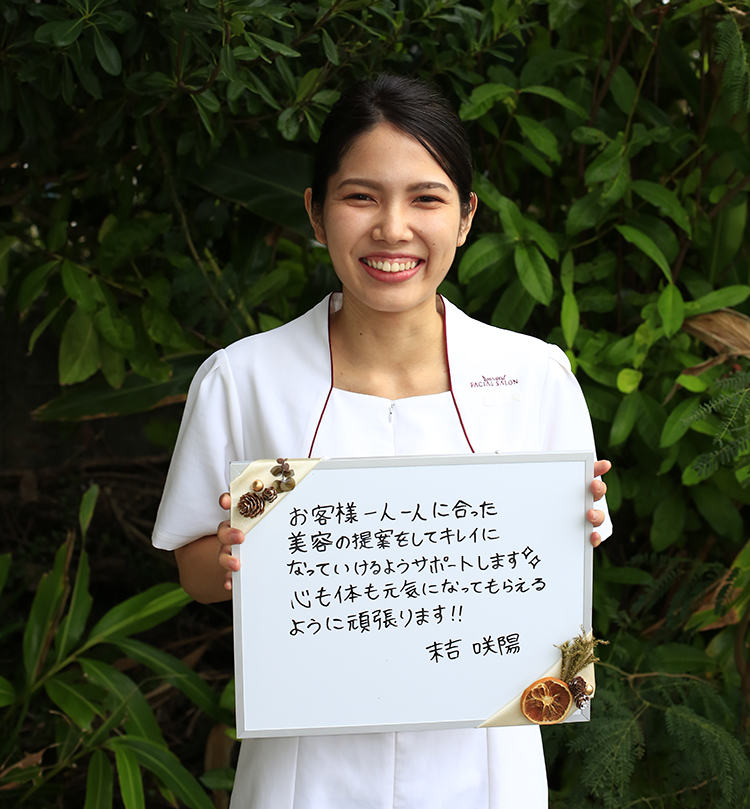 FACIAL SALON
お客様一人一人に合った
美容の提案をしてキレイに
なっていけるようサポートします✧✧
心も体も元気になってもらえる
ように頑張ります!!
末吉 咲陽